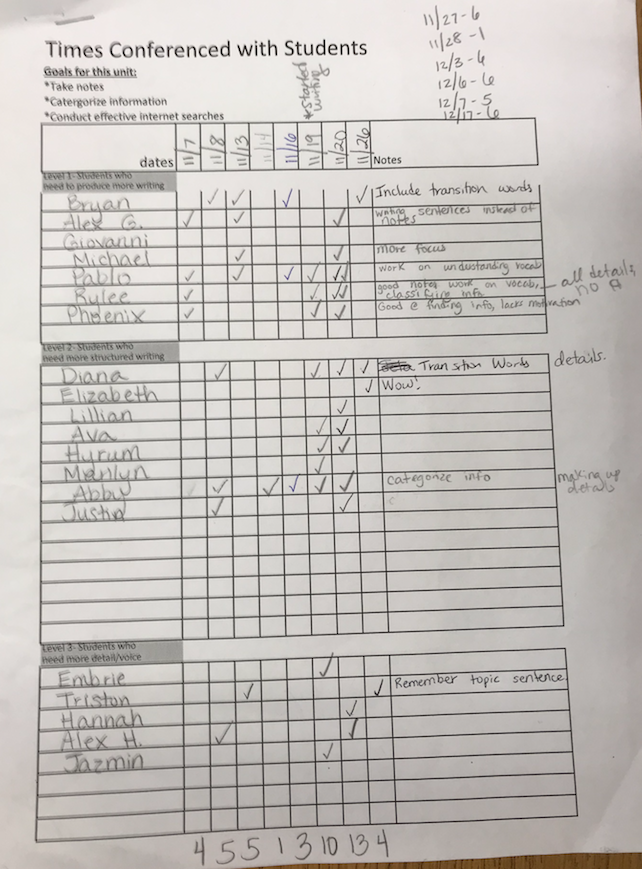 11/27-6
11/28-1
12/3-6
12/6-6
12/7-5
12/17-6
Times Conferenced with Students
Goals for this unit:
*Take notes
*Catergorize information
*Conduct effective internet searches
*Started writing
dates 11/7 11/8 11/13 11/14 11/16 11/19 11/20 11/26 Notes
Level 1- Students who
need to produce more writing
Bryan ✓ ✓ ✓ ✓ Include transition words
Alex G. ✓ ✓ ✓ writing sentences instead of notes
Giovanni
Michael ✓ ✓ more focus
Pablo ✓ ✓ ✓ ✓ ✓✓ work on undustanding vocab
Rylee ✓ ✓ ✓✓ good notes work on vocab, classifying info - all details, no
Phoenix ✓ ✓ ✓ Good @ finding info, lacks motivation
Level 2- Students who
need more structured writing
Diana ✓ ✓ ✓ ✓ Transition Words details.
Elizabeth ✓ Wow!
Lillian ✓
Ava ✓ ✓
Hyrum ✓ ✓
Marilyn ✓
Abby ✓ ✓ ✓ ✓ ✓ categorize info making up details
Justin ✓ ✓
Level 3- Students who
need more detail/voice
Embrie ✓
Triston ✓ ✓ Remember topic sentence
Hannah ✓
Alex H. ✓ ✓
Jazmin ✓
4 5 5 1 3 10 13 4